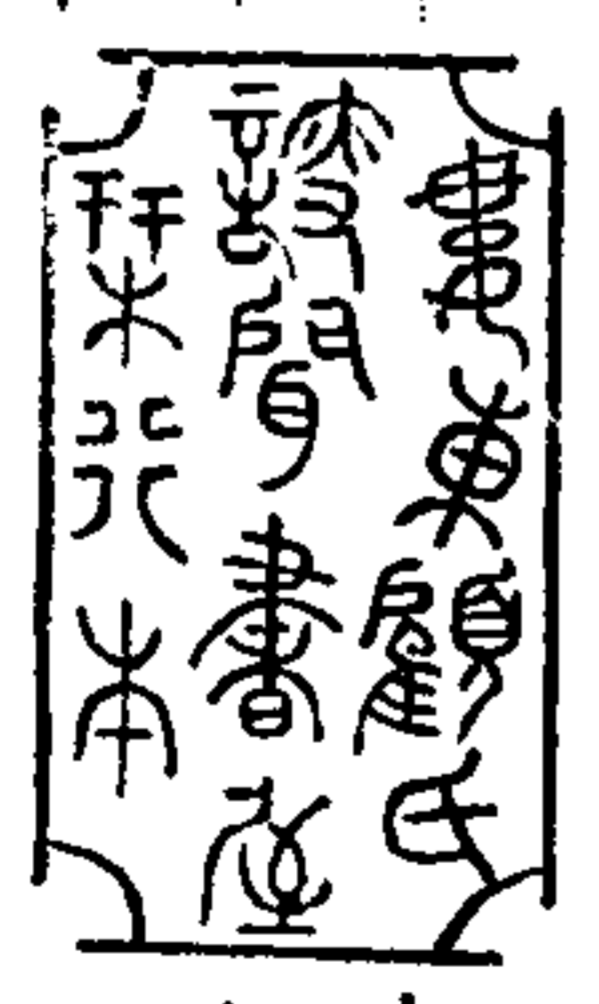 婁東顧氏
謏聞書屋
栞行本